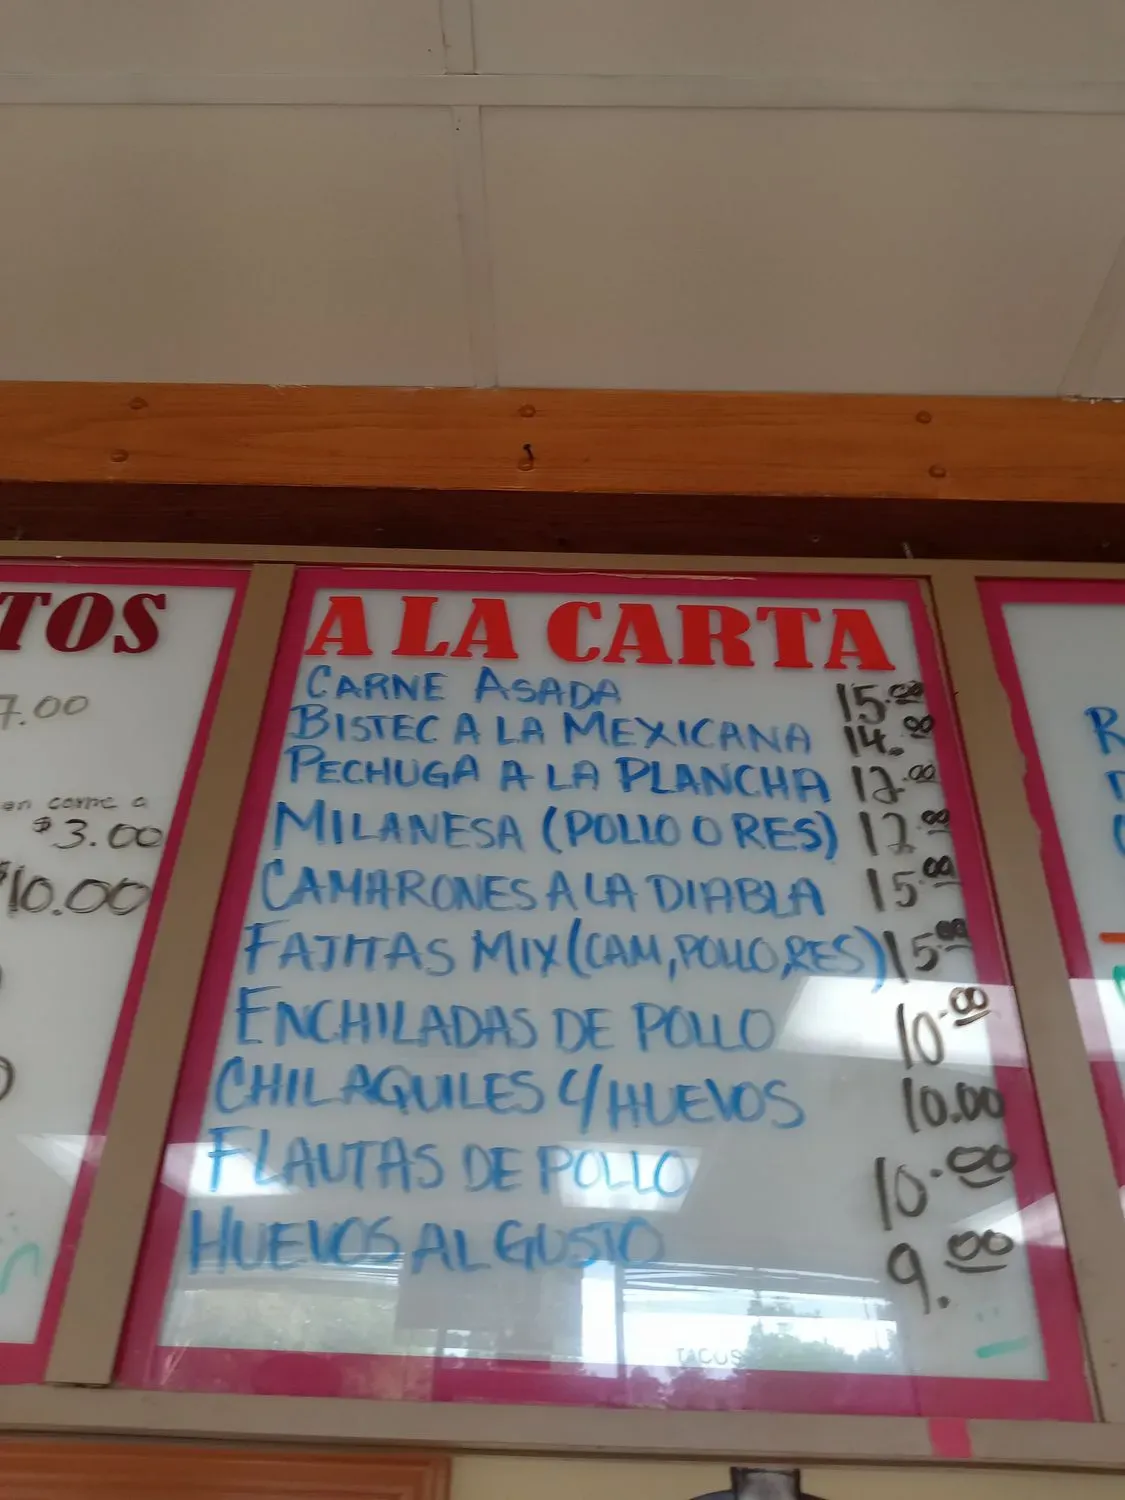 TOS
7.00
en carne a
$3.00
$10.00
A LA CARTA
CARNE ASADA 15.00
BISTEC A LA MEXICANA 14.00
PECHUGA A LA PLANCHA 12.00
MILANESA (POLLO O RES) 12.00
CAMARONES A LA DIABLA 15.00
FAJITAS MIX (CAM, POLLO, RES) 15.00
ENCHILADAS DE POLLO 10.00
CHILAQUILES Y/HUEVOS 10.00
FLAUTAS DE POLLO 10.00
HUEVOS AL GUSTO 9.00
TACOS
R